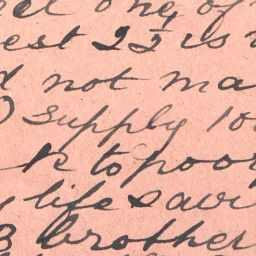 one of
est 25 is
not ma
Supply 10
k to poor
life savi
3 brother